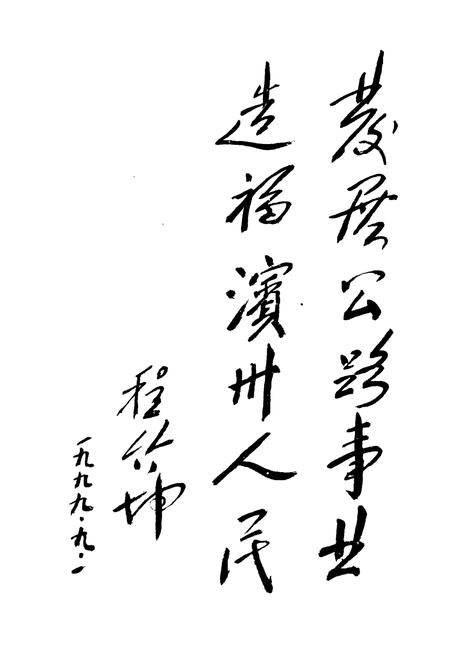 發展公路事业
造福濱州人民
程竹坤
一九九九·九·一